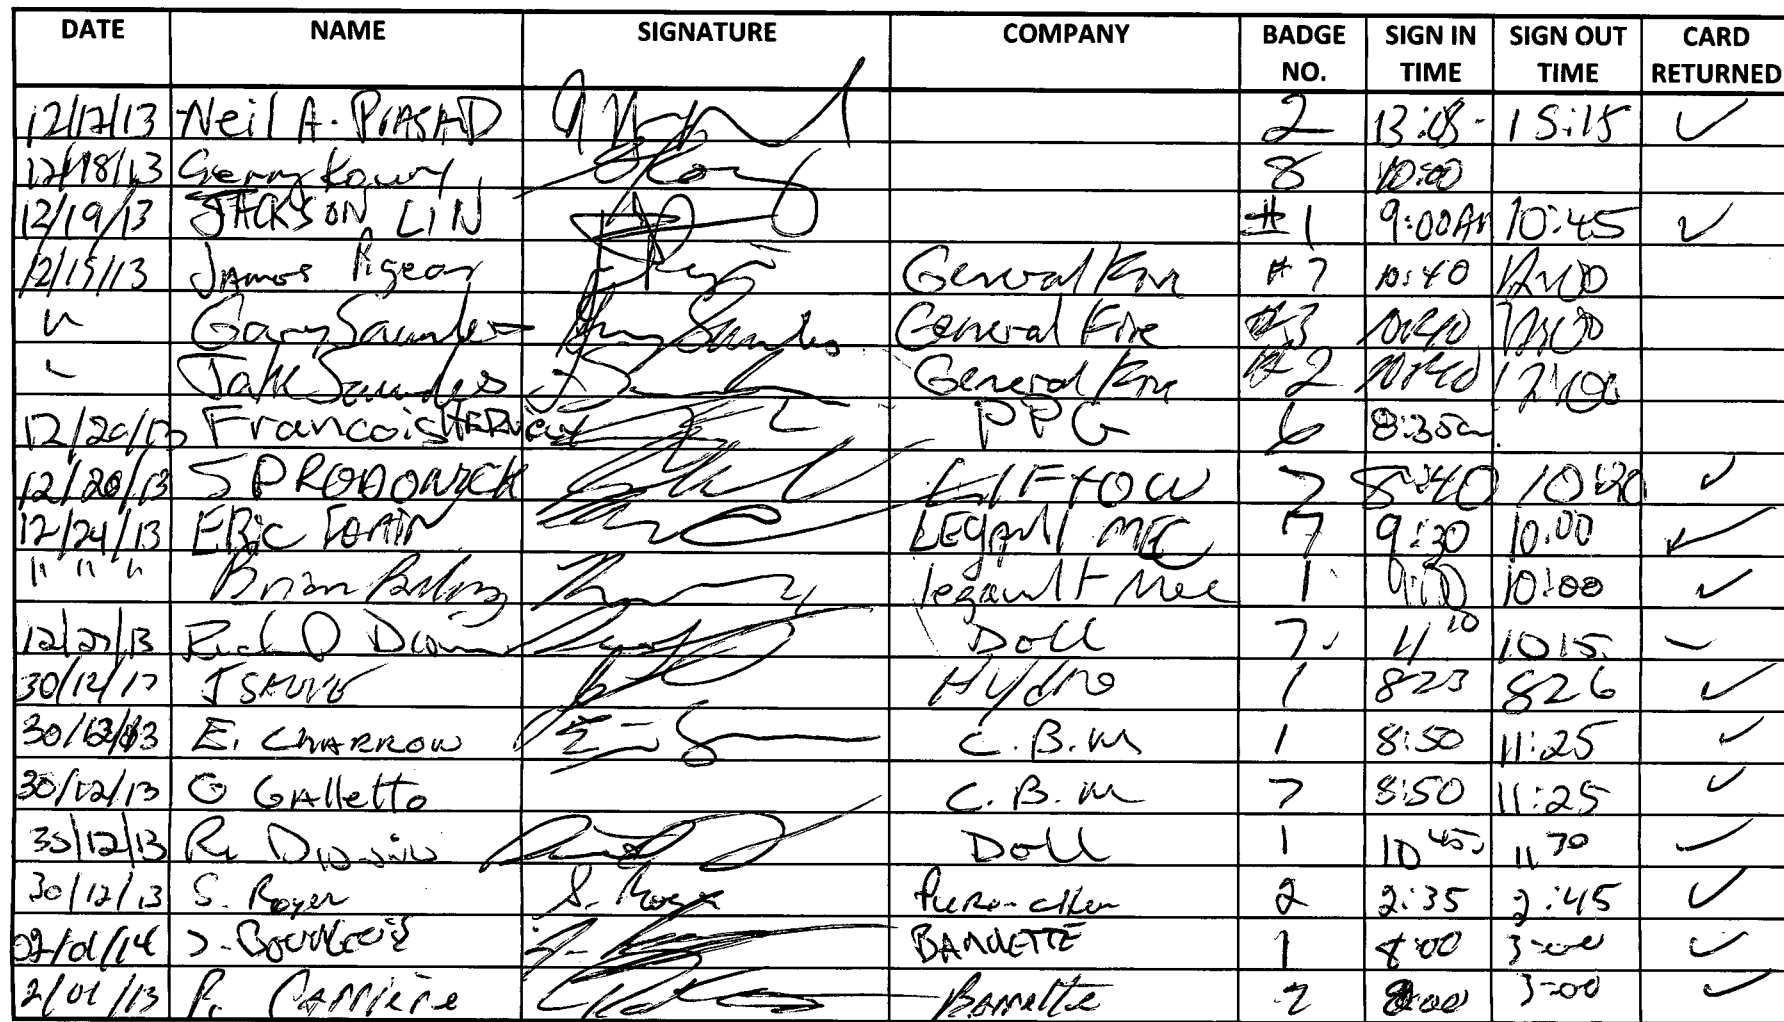 DATE NAME SIGNATURE COMPANY BADGE NO. SIGN IN TIME SIGN OUT TIME CARD RETURNED
12/17/13 Neil A. PRASAD 2 13:18 - 15:15 ✓
12/18/13 Gerry 8 10:00
12/19/13 JACKSON LIN #1 9:00AM 10:45 ✓
12/19/13 James Pigeon General Fire #7 10:40 12:00
" Gary Saunders General Fire #3 10:40 12:00
" Saunders General Fire #2 10:40 12:00
12/20/13 Francois PPG 6 8:30am
12/20/13 S PRODONICK LIFTOW 7 8:40 ✓
12/24/13 ERic LEgAult MEC 7 9:30 10:00 ✓
" " " Brian legault Mec 1 10:00 ✓
12/27/13 Doll 7 11 10 1015 ✓
30/12/13 J SAUVE Hydro 1 823 826 ✓
30/12/13 E. CHARROW C.B.M 1 8:50 11:25 ✓
30/12/13 G GAlletto C.B.M 7 8:50 11:25 ✓
30/12/13 R. Doll 1 10 45 11 30 ✓
30/12/13 S. Royer S. Royer 2 2:35 2:45 ✓
02/01/14 1 8:00 3:00 ✓
2/01/13 P. Carrière Barrette 2 8:00 3:00 ✓